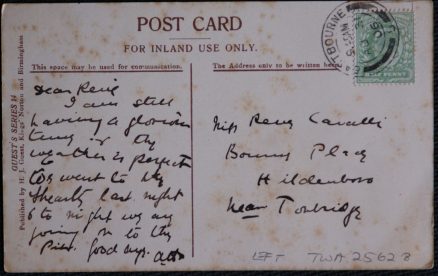 POST CARD
FOR INLAND USE ONLY.
This space may be used for communication.
The Address only to be written here.
GUEST'S SERIES 14
Published by H. J. Guest, Kings Norton and Birmingham
Dear Rene
I am still
having a glorious
time & the
weather is perfect
we went to the
Theatre last night
& to night we are
going on to the
Pier. Good bye.
Miss Rene Cavalli
Bonny Place
Hildenboro
Near Tonbridge
LEFT TWA 2562 B